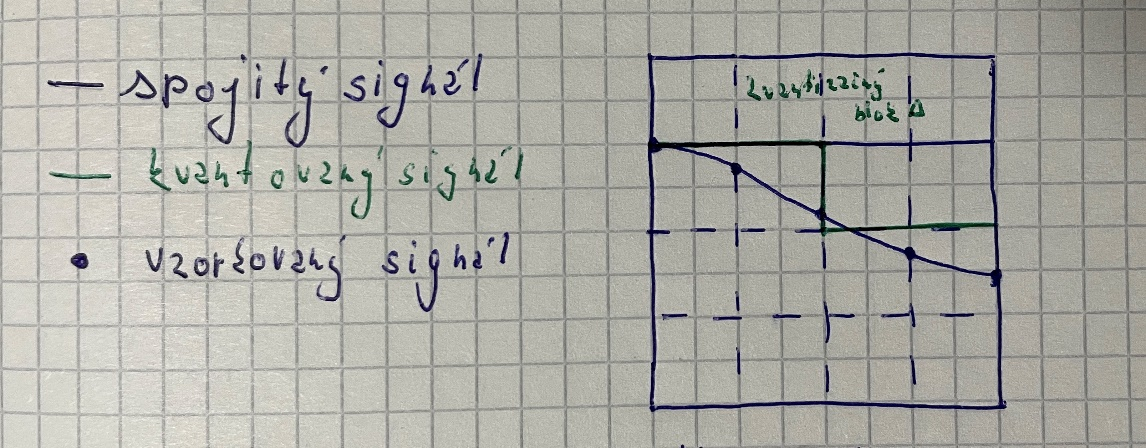 spojitý signál
kvantovaný signál
vzorkovaný signál
kvantizační
blok Δ